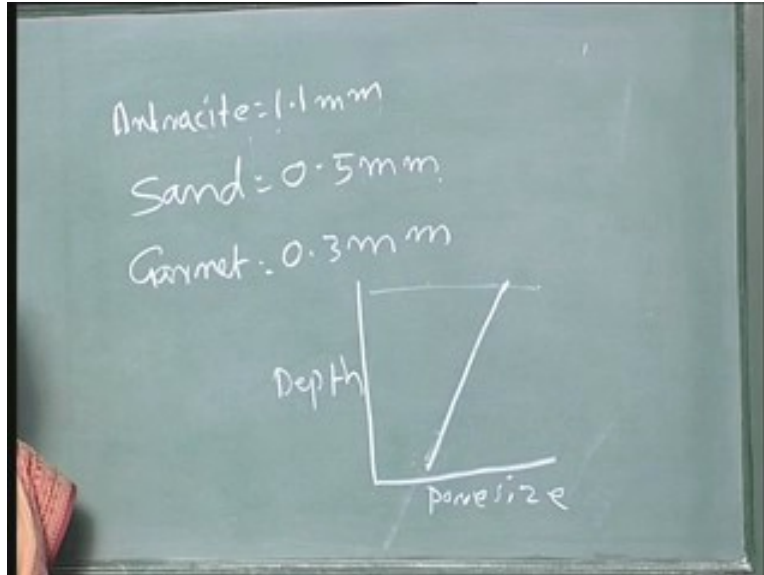 Antracite = 1.1mm
Sand = 0.5mm
Garnet = 0.3mm
Depth
Pore size